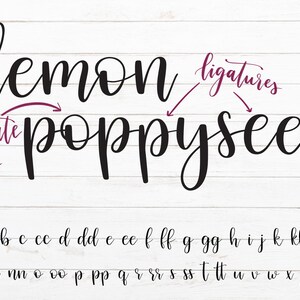 lemon
ligatures
poppysee
b c cc d dd e ee f ff g gg h i j k
nn o oo p pp q r rr s ss t tt u v w x